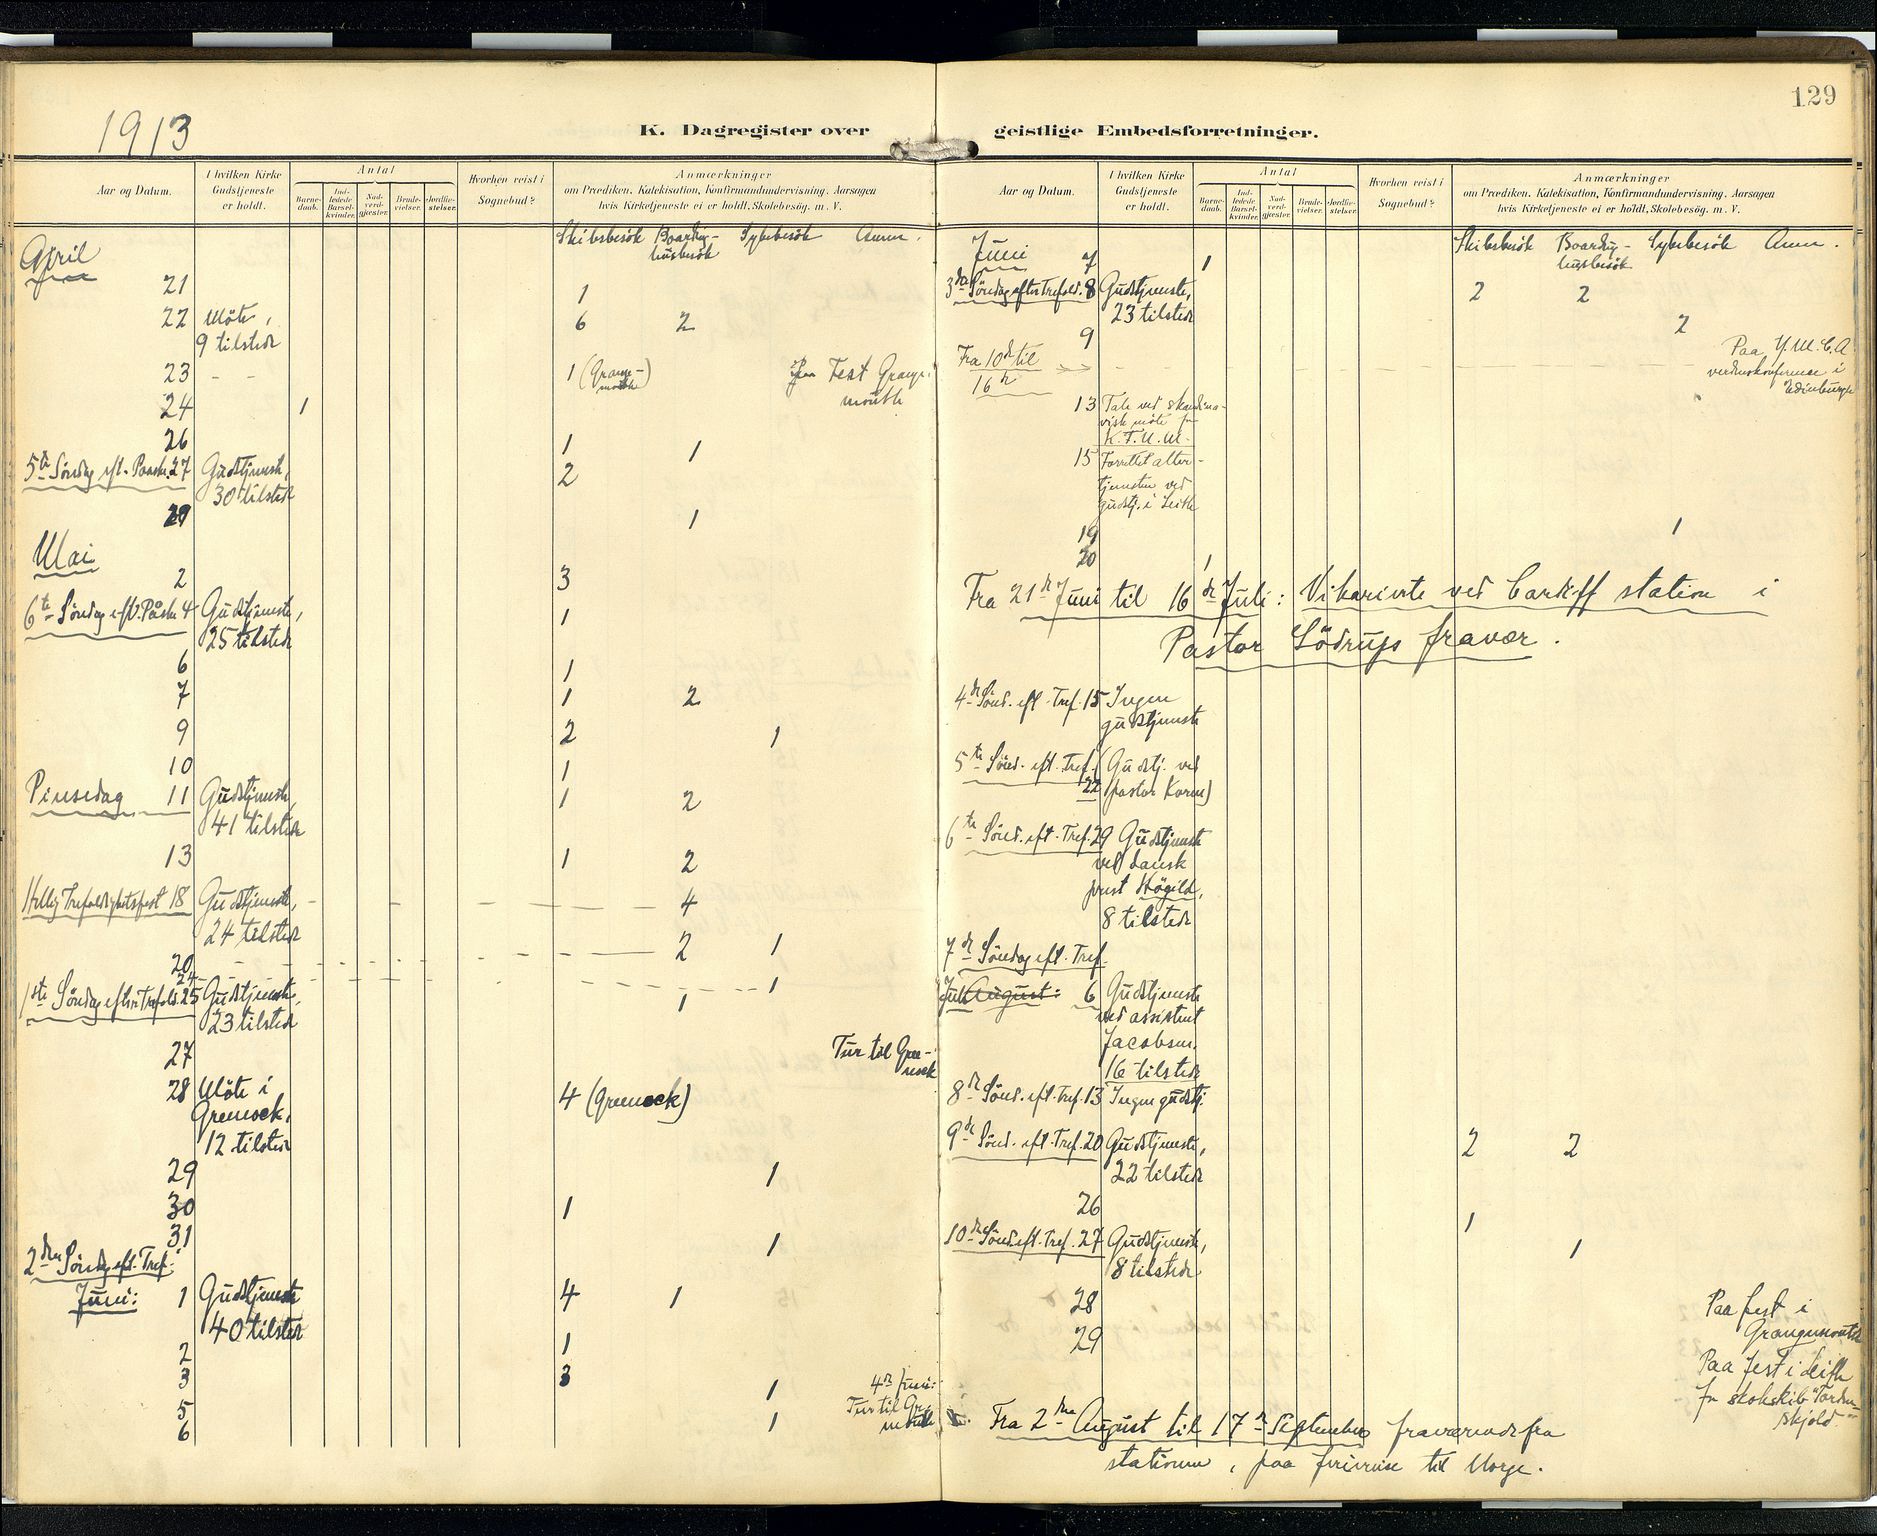 129
1913
K. Dagregister over geistlige Embedsforretninger.
Aar og Datum.
I hvilken Kirke Gudstjeneste er holdt.
Antal
Barne-daab.
Ind-ledede Barsel-kvinder.
Nad-verd-gjester.
Brude-vielser.
Jordfæ-stelser.
Hvorhen reist i Sognebud?
Anmærkninger
om Prædiken, Katekisation, Konfirmandundervisning, Aarsagen
hvis Kirketjeneste ei er holdt, Skolebesøg. m. V.
Skibsbesök Boarding-husbesök Sykebesök Anm.
April
21 1
22 Möte, 6 2
9 tilstede
23 - - 1 (Grangemouth) Paa Fest Grangemouth
24 1
26 1 1
5te Söndag eft. Paaske. 27 Gudstjeneste, 2
30 tilstede
29 1
Mai
2 3
6te Söndag eft. Påske 4 Gudstjeneste, 1
25 tilstede
6 1
7 1 2
9 2 1
10 1
Pinsedag 11 Gudstjeneste, 1 2
41 tilstede
13 1 2
Hellig Trefoldighetsfest 18 Gudstjeneste, 4
24 tilstede
20 2 1
24 1
1ste Söndag efter Trefold. 25 Gudstjeneste, 1
23 tilstede
27 Tur til Greenock
28 Möte i 4 (Greenock)
Greenock.
12 tilstede
29 1
30 1
31 1
2den Söndag eft. Tref.
Juni: 1 Gudstjeneste 4 1
40 tilstede
2 1
3 3
5 1 4de Juni:
6 1 Tur til
Aar og Datum.
I hvilken Kirke Gudstjeneste er holdt.
Antal
Barne-daab.
Ind-ledede Barsel-kvinder.
Nad-verd-gjester.
Brude-vielser.
Jordfæ-stelser.
Hvorhen reist i Sognebud?
Anmærkninger
om Prædiken, Katekisation, Konfirmandundervisning, Aarsagen
hvis Kirketjeneste ei er holdt, Skolebesøg. m. V.
Skibsbesök Boarding-husbesök Sykebesök Anm.
Juni 7 1
3die Söndag efter Trefold. 8 Gudstjeneste, 2 2
23 tilstede
9 2
Fra 10de til 16de Paa Y.M.C.A.
verdenskonferense i
Edinburgh
13 Tale ved skandina-
visk möte for
K.F.U.M.
15 Forrettet alter-
tjenesten ved
gudstj. i Leith
19 1
20 1
Fra 21de Juni til 16de Juli: Vikarierte ved Cardiff station i
Pastor Södrups fravær.
4de Sönd. eft. Tref. 15 Ingen
gudstjeneste
5te Sönd. eft. Tref. 22 (Gudstj. ved
pastor
6te Sönd. eft. Tref. 29 Gudstjeneste
ved dansk
prest Högild,
8 tilstede
7de Söndag eft. Tref.
Juli August: 6 Gudstjeneste
ved assistent
Jacobsen.
16 tilstede
8de Sönd. eft. Tref. 13 Ingen gudstj.
9de Sönd. eft. Tref. 20 Gudstjeneste, 2 2
22 tilstede
26 1
10de Sönd. eft. Tref. 27 Gudstjeneste, 1
8 tilstede
28 Paa fest i
Grangemouth
29 Paa fest i Leith
for skoleskib "Torden-
skjold"
Fra 2den August til 17de September fraværende fra
stationen, paa feriereise til Norge.